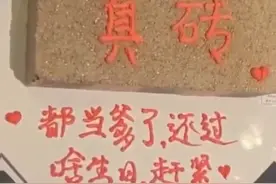 真砖
都当爹了,还过
啥生日,赶紧